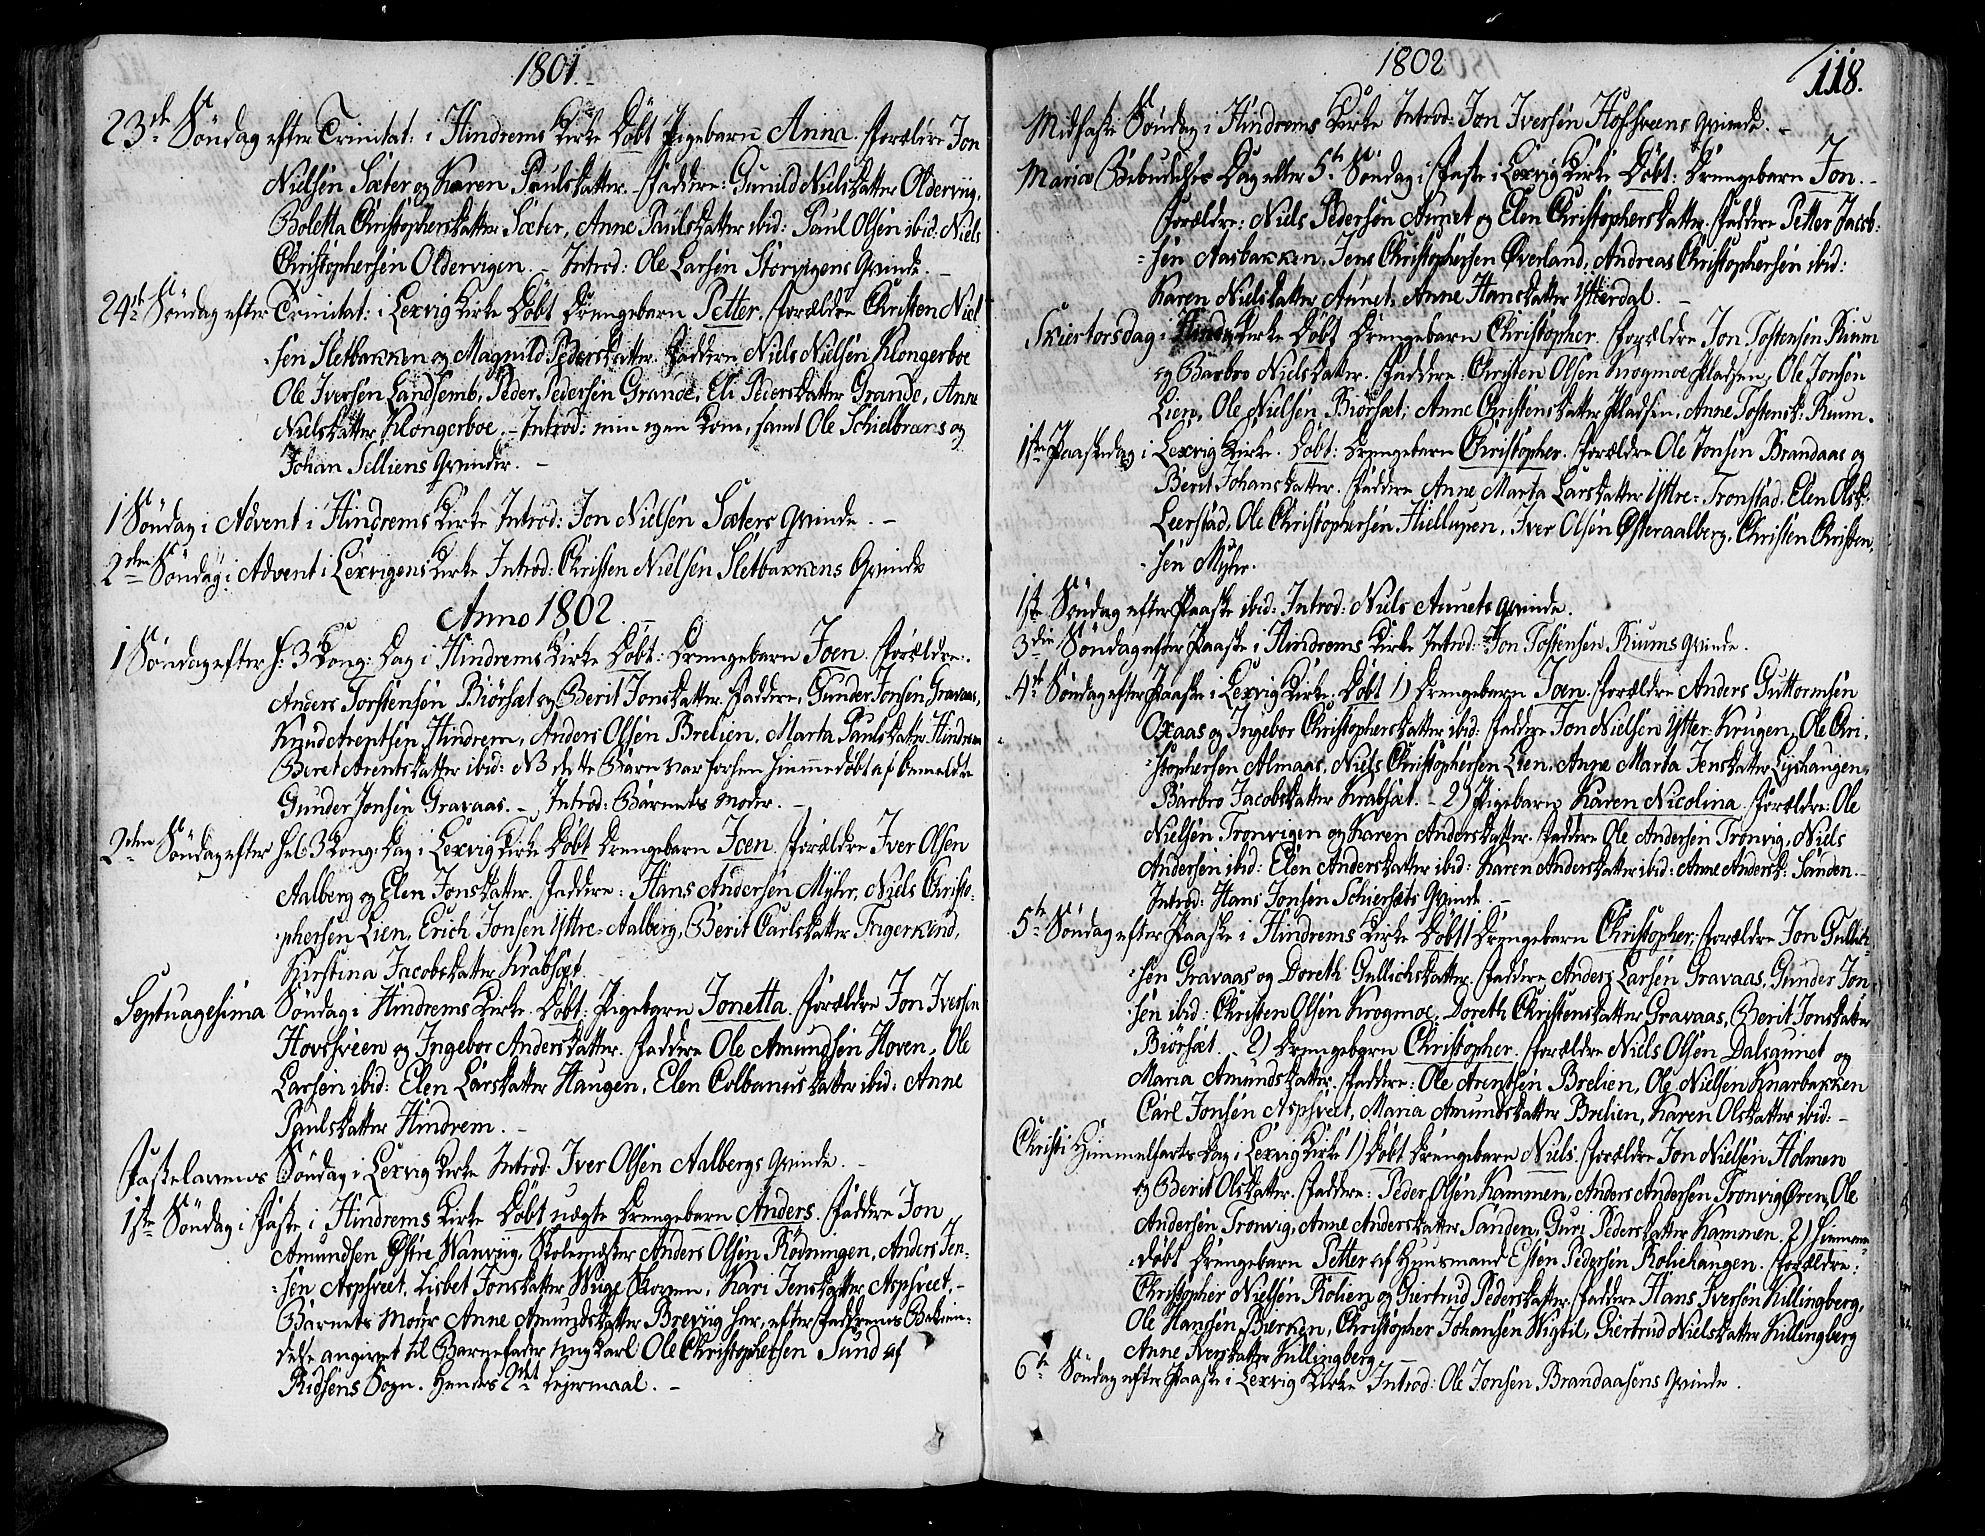 1801.
23de Søndag efter Trinitat: i Hindrems Kirke Døbt Pigebarn Anna. Forældre Jon
Nielsen Sæter og Karen Paulsdatter. Faddere: Gunild Nielsdatter Oldervig,
Boletta Christophersdatter Sæter, Anne Paulsdatter ibid: Paul Olsen ibid: Niels
Christophersen Oldervigen. – Introd: Ole Larsen Storvigens Qvinde. –
24de Søndag efter Trinitat: i Lexvig Kirke Døbt Drengebarn Petter. Forældre Christen Niel-
sen Sletbakken og Magnild Pedersdatter. Faddere Niels Nielsen Klongerboe
Ole Iversen Landsemb, Peder Pedersen Grande, Eli Pedersdatter Grande, Anne
Nielsdatter Klongerboe. – Introd: min egen Kone, samt Ole Schielbreens og
Johan Selliens Qvinder. –
1 Søndag i Advent i Hindrems Kirke Introd: Jon Nielsen Sæters Qvinde. –
2den Søndag i Advent i Lexvigens Kirke Introd: Christen Nielsen Sletbakkens Qvinde
Anno 1802.
1 Søndag efter H: 3 Kong: Dag i Hindrems Kirke Døbt: Drengebarn Joen. Forældre.
Anders Torstensen Biørsæt og Berit Jonsdatter. Faddere, Gunder Jonsen Gravaas,
Knud Arentsen Hindrem, Anders Olsen Brelien, Marta Paulsdatter Hindrem
Beret Arentsdatter ibid: NB dette Barn var forhen hiemmedøbt af bemeldte
Gunder Jonsen Gravaas. – Introd: Barnets Moder. –
2den Søndag efter Hel. 3 Kong: Dag i Lexvig Kirke Døbt Drengebarn Joen. Forældre Iver Olsen
Aalberg og Elen Jonsdatter. Faddere: Hans Andersen Myhr, Niels Christo-
phersen Lien, Erich Jonsen Yttre-Aalberg, Berit Carlsdatter Tngerkend,
Kirstina Jacobsdatter Krabsæt
Septuagesima Søndag i Hindrems Kirke. Døbt: Pigebarn Jonetta. Forældre Jon Iversen
Hovsveen og Ingebor Andersdatter. Faddere Ole Amundsen Hoven, Ole
Larsen ibid: Elen Larsdatter Haugen, Elen Colbanusdatter ibid: Anne
Paulsdatter Hindrem. –
Fastelavens Søndag i Lexvig Kirke Introd: Iver Olsen Aalbergs Qvinde. –
1ste Søndag i Faste i Hindrems Kirke Døbt uægte Drengebarn Anders. Faddere Jon
Amundsen Østre Wanvig, Skolemester Anders Olsen Rødningen, Anders Jen-
sen Aspsveet, Lisbet Jonsdatter Wuge Skoven, Kari Jensdatter Aspsveet, –
Barnets Moder Anne Amundsdatter Brevig har, efter Faddernes Bekien-
delse angivet til Barnefader Ungkarl Ole Christophersen Sund af
Ridsens Sogn. Hendes 2det Leiermaal. –
1802
118.
Midfaste Søndag i Hindrems Kirke Introd: Jon Iversen Hofsveens Qvinde. –
Mariæ Bebudelses Dag eller 5te Søndag i Faste i Lexvig Kirke Døbt: Drengebarn Jon. –
Forældre: Niels Pedersen Aunet og Elen Christophersdatter. Faddere Petter Jacob-
sen Aasbakken, Jens Christophersen Øverland, Andreas Christophersen ibid:
Karen Nielsdatter Aunet, Anne Hansdatter Ytterdal. –
Skiertorsdag i Hindr: Kirke Døbt Drengebarn Christopher. Forældre Jon Tostensen Rium
og Barbro Nielsdatter. Faddere: Christen Olsen Krogmoe Pladsen, Ole Jonsen
Lien, Ole Nielsen Biørsæt, Anne Christensdatter Pladsen, Anne Tostensd: Rium.
1ste Paaskedag i Lexvig Kirke. Døbt: Drengebarn Christopher. Forældre Ole Jonsen Brandaas og
Berit Johansdatter. Faddere Anne Marta Larsdatter Yttre-Tronstad, Elen Olsd:
Leerstad, Ole Christophersen Hiellupen, Iver Olsen Østeraalberg, Christen Christen-
sen Myhr.
1ste Søndag efter Paaske ibid: Introd: Niels Aunets Qvinde.
3die Søndag efter Paaske i Hindrems Kirke Introd: Jon Tostensen Riums Qvinde.
4de Søndag efter Paaske i Lexvig Kirke: Døbt 1) Drengebarn Joen. Forældre Anders Guttormsen
Oxaas og Ingebor Christophersdatter ibid: Faddere Jon Nielsen Ytter-Krugen, Ole Chri-
stophersen Almaas, Niels Christophersen Lien, Anne Marta Jensdatter Lyshaugen,
Barbro Jacobsdatter Krabsæt. – 2) Pigebarn Karen Nicolina. Forældre: Ole
Nielsen Tronvigen og Karen Andersdatter. Faddere Ole Andersen Tronvig, Niels
Andersen ibid: Elen Andersdatter ibid: Karen Andersdatter ibid: Anne Andersd: Sanden. –
Introd: Hans Jonsen Schiersæts Qvinde. –
5te Søndag efter Paaske i Hindrems Kirke Døbt 1 Drengebarn Christopher, Forældre Jon Gullich-
sen Gravaas og Doreth Gullichsdatter. Faddere Anders Larsen Gravaas, Gunder Jon-
sen ibid: Christen Olsen Krogmoe, Doreth Christensdatter Gravaas, Berit Jonsdatter
Biørsæt. – 2) Drengebarn Christopher. Forældre Niels Olsen Dalsaunet og
Maria Amundsdatter. Faddere: Ole Arentsen Brelien, Ole Nielsen Knarbakken
Carl Jonsen Aspsveet, Maria Amundsdatter Brelien, Karen Olsdatter ibid: –
Christi Himmelfarts Dag i Lexvig Kirke 1) Døbt Drengebarn Niels. Forældre Jon Nielsen Holmen
og Berit Olsdatter. Faddere: Peder Olsen Kammen, Anders Andersen Tronvig Øren, Ole
Andersen Tronvig, Anne Andersdatter Sanden, Guri Pedersdatter Kammen. 2) Hiemme-
døbt Drengebarn Petter af Huusmand Esten Pedersen Roliehaugen. Forældre:
Christopher Nielsen Rolien og Giertrud Pedersdatter. Faddere Hans Iversen Killingberg,
Ole Hansen Bierken, Christopher Johansen Wigtil, Giertrud Nielsdatter Killingberg
Anne Iversdatter Killingberg
6te Søndag efter Paaske i Lexvig Kirke Introd: Ole Jonsen Brandaasens Qvinde.